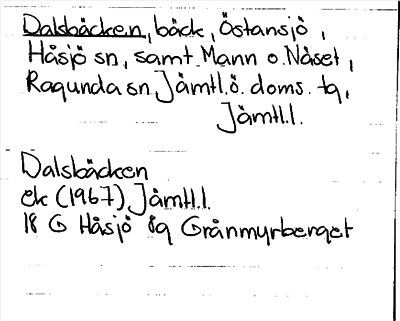 Dalsbäcken, bäck, Östansjö,
Håsjö sn, samt Mann o. Näset,
Ragunda sn, Jämtl. ö. doms. tg,
Jämtl.l.
Dalsbäcken
ek (1967) Jämtl.l.
18 G Håsjö 8g Grånmyrberget